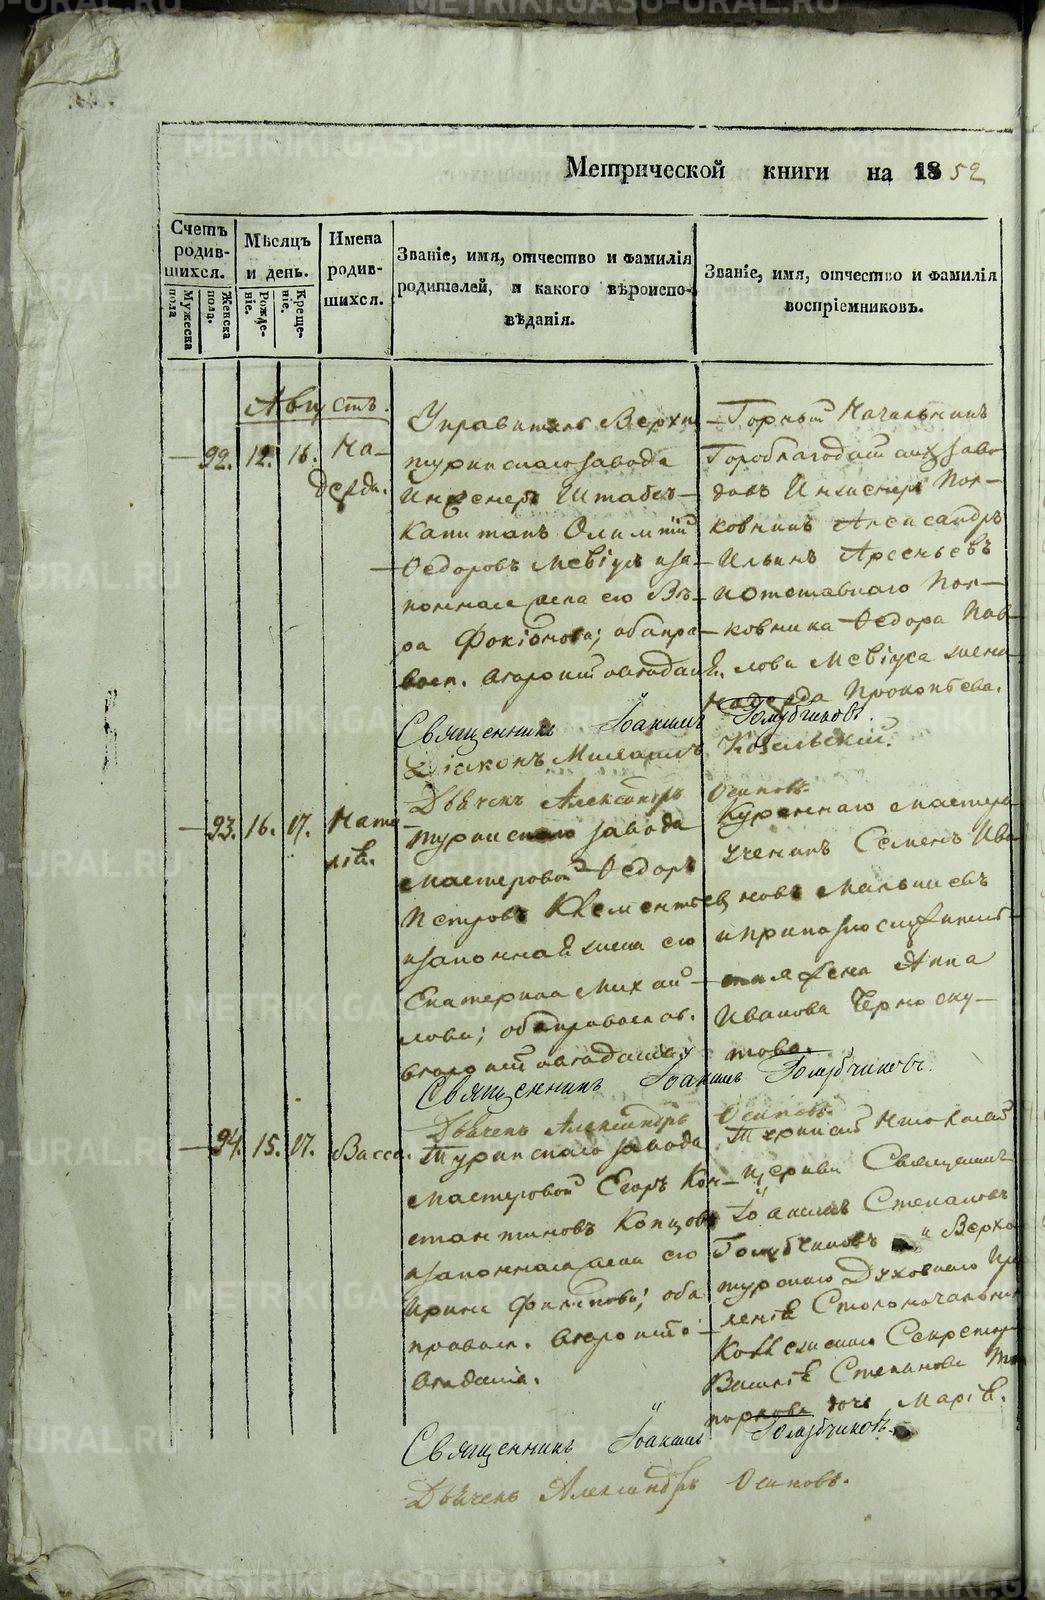 Метрической книги на 1852
Счетъ родив-шихся.
Мужеска пола
Женска пола.
Мѣсяцъ и день.
Рожде-ніе.
Креще-ніе.
Имена родив-шихся.
Званіе, имя, отчество и фамилія
родителей, и какого вѣроиспо-
вѣданія.
Званіе, имя, отчество и фамилія
воспріемниковъ.
Августъ.
— 92. 12. 16. На-
дежда.
Управитель Верхне
туринскаго завода
Инженеръ Штабсъ-
Капитанъ Олимпій
Ѳедоровъ Мевіусъ и за-
конная жена его Вѣ-
ра Фокіонова; оба пра-
восл. вѣроисповѣданія.
Горный Начальникъ
Гороблагодатскихъ заво-
довъ Инженеръ Пол-
ковникъ Александръ
Ильинъ Арсеньевъ
и отставнаго Пол-
ковника Ѳедора Пав-
лова Мевіуса жена
Надежда Прокопьева.
Священникъ Іоакимъ Голубчиковъ.
Діаконъ Михаилъ Козельскій.
Дьячекъ Александръ Осиповъ.
— 93. 16. 17. Ната-
лія.
Туринскаго завода
мастеровой Ѳедоръ
Петровъ Клементьевъ
и законная жена его
Екатерина Михай-
лова; оба православ.
вѣроисповѣданія
Куреннаго мастера
ученикъ Семенъ Ива-
новъ Мальцевъ
и приказнослужитель-
ская жена Анна
Иванова Черноску-
това.
Священникъ Іоакимъ Голубчиковъ.
Дьячекъ Александръ Осиповъ.
— 94. 15. 17. Васса.
Туринскаго завода
мастеровой Егоръ Кон-
стантиновъ Копцовъ
и законная жена его
Ирина Филипова; оба
правосл. вѣроиспо-
вѣданія.
Туринской Николаев
церкви Священникъ
Іоакимъ Степановъ
Голубчиковъ и Верхо
турскаго Духовнаго Пра
ленія Столоначальник
Коллежскаго Секретаря
Василія Степанова То
поркова дочь Марія.
Священникъ Іоакимъ Голубчиковъ.
Дьячекъ Александръ Осиповъ.
METRIKI.GASO-URAL.RU